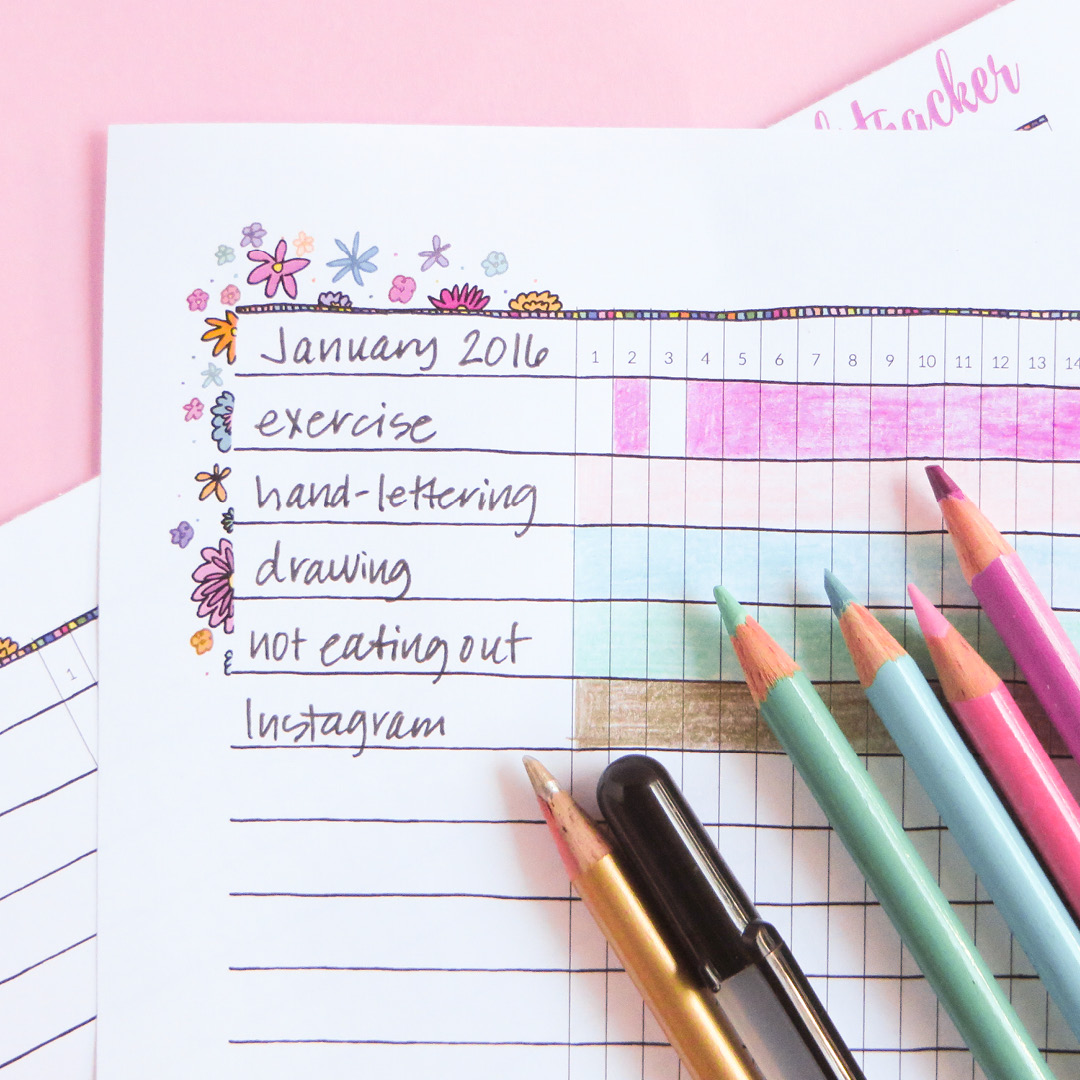 tracker
January 2016 1 2 3 4 5 6 7 8 9 10 11 12 13 14
exercise
hand-lettering
drawing
not eating out
1
Instagram